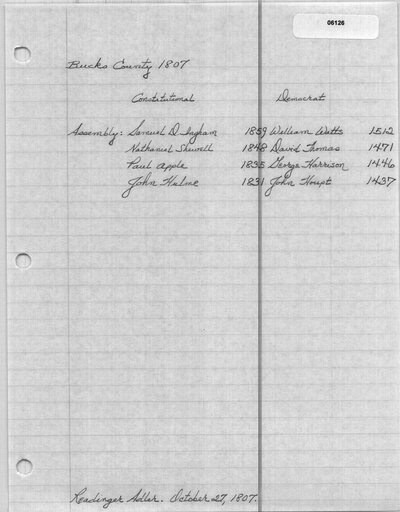 06126
Bucks County 1807
Constitutional Democrat
Assembly: Samuel D. Ingham 1859 William Watts 1512
Nathaniel Shewell 1848 David Thomas 1471
Paul Apple 1835 George Harrison 1446
John Hulme 1831 John Houpt 1437
Readinger Adler. October 27, 1807.